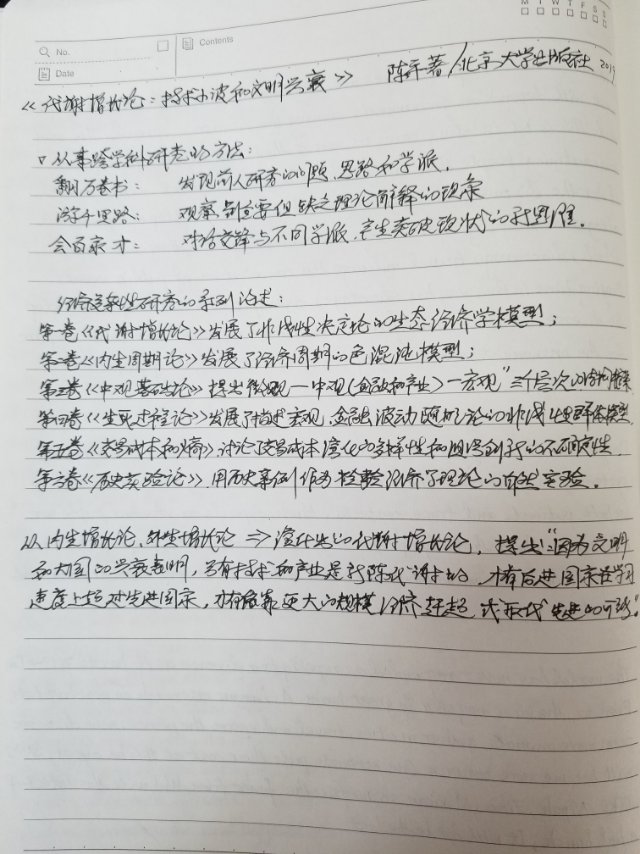 M T W T F S S
No.
Contents
Date
《代谢增长论：技术小波和文明兴衰》 陈平著/北京大学出版社 2019
从事跨学科研究的方法：
翻万卷书： 发现前人研究的问题、思路和学派.
游千里路： 观察到重要但缺乏理论解释的现象
会百家才： 对话交锋与不同学派，产生突破现状的新思维.
经济复杂性研究的系列论述：
第一卷《代谢增长论》发展了非线性决定论的生态经济学模型；
第二卷《内生周期论》发展了经济周期的色混沌模型；
第三卷《中观基础论》提出微观—中观(金融和产业)—宏观"三个层次的结构
第四卷《生灭过程论》发展了描述宏观、金融波动随机论的非线性群体模型
第五卷《交易成本和熵》讨论了交易成本演化的多样性和创新的不确定性
第六卷《历史实验论》用历史案例作为检验经济学理论的自然实验.
从内生增长论、外生增长论 ⇒ 演化的代谢增长论，提出："因为文明
和大国的兴衰表明，只有技术和产业是新陈代谢的，才有后进国家在学习
速度上超过先进国家，才有依靠更大的规模经济赶超、或取代先进的可能。"